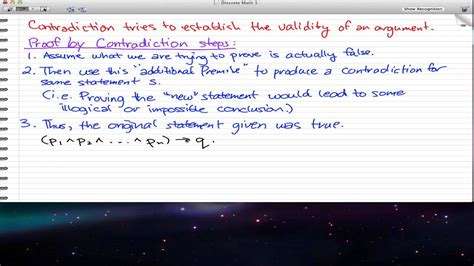 Discrete Math 5
Show Recognition
Contradiction tries to establish the validity of an argument.
Proof by Contradiction steps:
1. Assume what we are trying to prove is actually false.
2. Then use this "additional Premise" to produce a contradiction for
some statement s.
(i.e. Proving the "new" statement would lead to some
illogical or impossible conclusion.)
3. Thus, the original statement given was true.
(p₁ ∧ p₂ ∧ ... ∧ pn) → q.